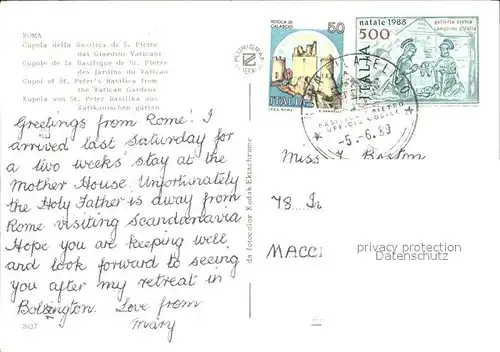 ROMA
Cupola della Basilica di S. Pietro
dai Giardini Vaticani
Cupole de la Basilique de St. Pierre
des Jardins du Vatican
Cupol of St. Peter's Basilica from
the Vatican Gardens
Kupola von St. Peter Basilika aus
Vatikanischen gärten
Greetings from Rome! I
arrived last Saturday for
a two weeks stay at the
Mother House. Unfortunately
the Holy Father is away from
Rome visiting Scandanavia.
Hope you are keeping well,
and look forward to seeing
you after my retreat in
Love from
Mary
2037
PLURIGRAF
TERNI
da fotocolor Kodak Ektachrome
ROCCA DI
CALASCIO
50
ITALIA
natale 1988
500
ITALIA
galleria civica
campione d'italia
UFFICIO
-5.-6.89
Miss
78
MACC
privacy protection
Datenschutz